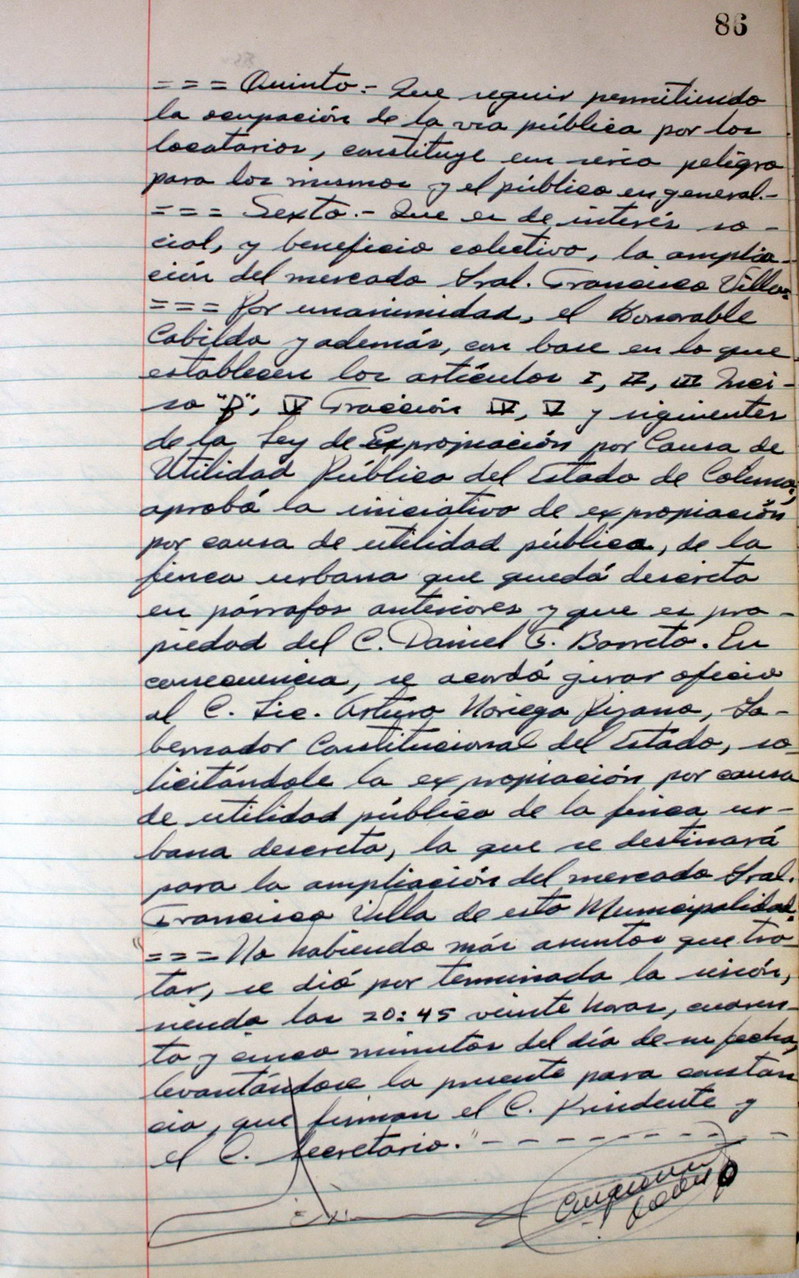 86
= = = Quinto.- Que seguir permitiendo
la ocupación de la vía pública por los
locatarios, constituye un serio peligro
para los mismos y el público en general.-
= = = Sexto.- Que es de interés so-
cial, y beneficio colectivo, la amplia-
ción del mercado Gral. Francisco Villa.
= = = Por unanimidad, el Honorable
Cabildo y además, con base en lo que
establecen los artículos I, II, III Inci-
so "f", IV Fracción IV, V y siguientes
de la Ley de Expropiación por Causa de
Utilidad Pública del Estado de Colima,
aprobó la iniciativa de expropiación
por causa de utilidad pública, de la
finca urbana que quedá descrita
en párrafos anteriores y que es pro-
piedad del C. Daniel G. Barreto. En
consecuencia, se acordó girar oficio
al C. Lic. Arturo Noriega Pizano, Go-
bernador Constitucional del Estado, so-
licitándole la expropiación por causa
de utilidad pública de la finca ur-
bana descrita, la que se destinará
para la ampliación del mercado Gral.
Francisco Villa de esta Municipalidad.
= = = No habiendo más asuntos que tra-
tar, se dió por terminada la sesión,
siendo las 20:45 veinte horas, cuaren-
ta y cinco minutos del día de su fecha,
levantándose la presente para constan
cia, que firman el C. Presidente y
el C. Secretario."- - - - - - - - -